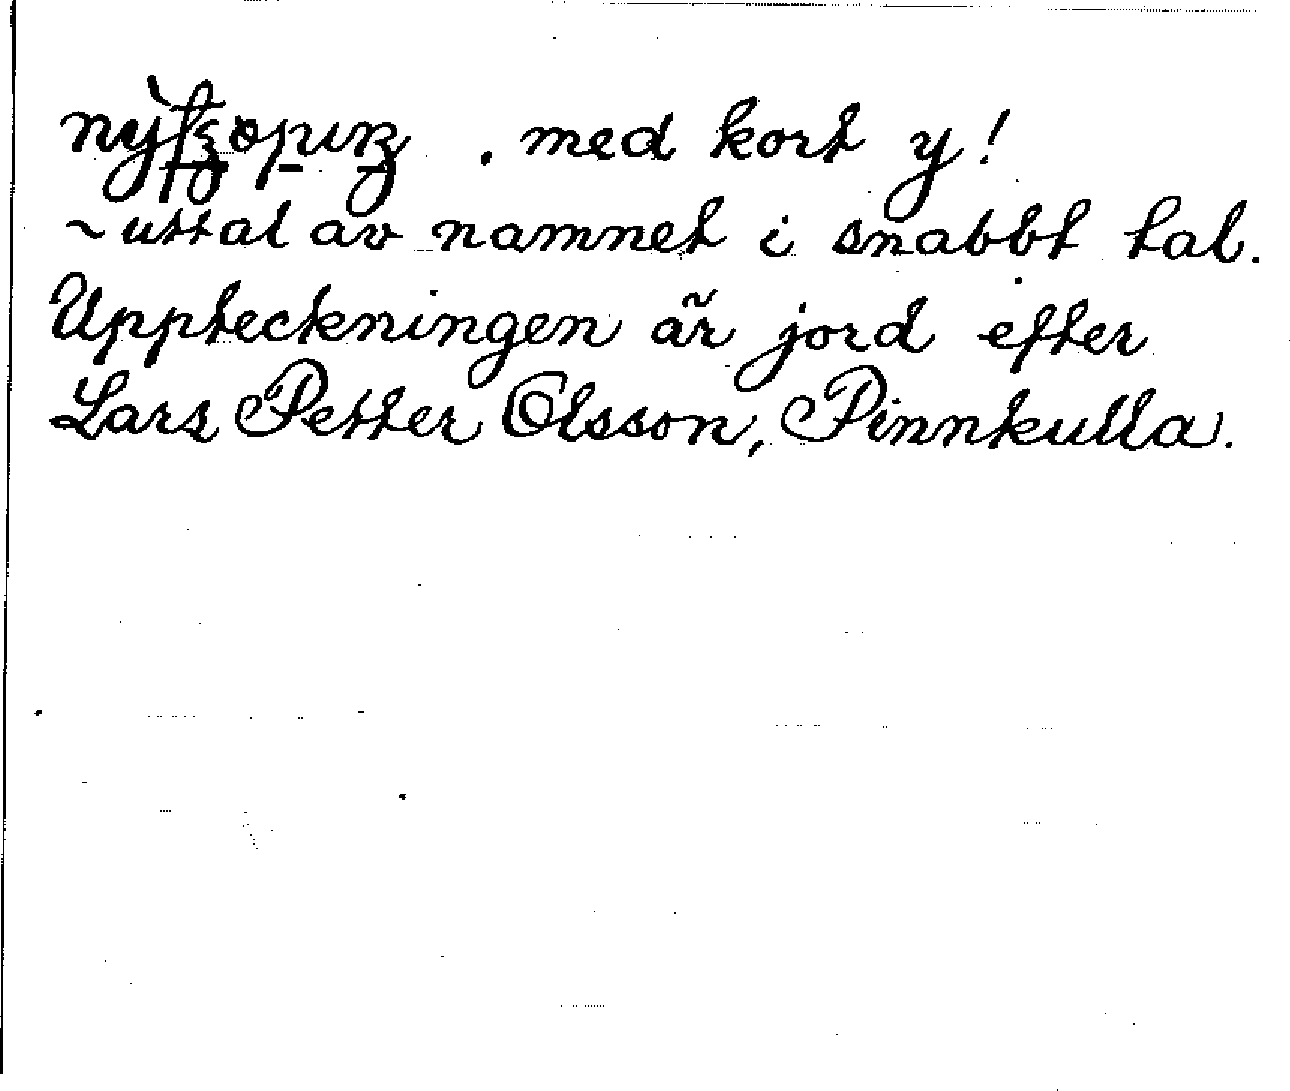 . med kort y!
~ uttal av namnet i snabbt tal.
Uppteckningen är jord efter
Lars Petter Olsson, Pinnkulla.